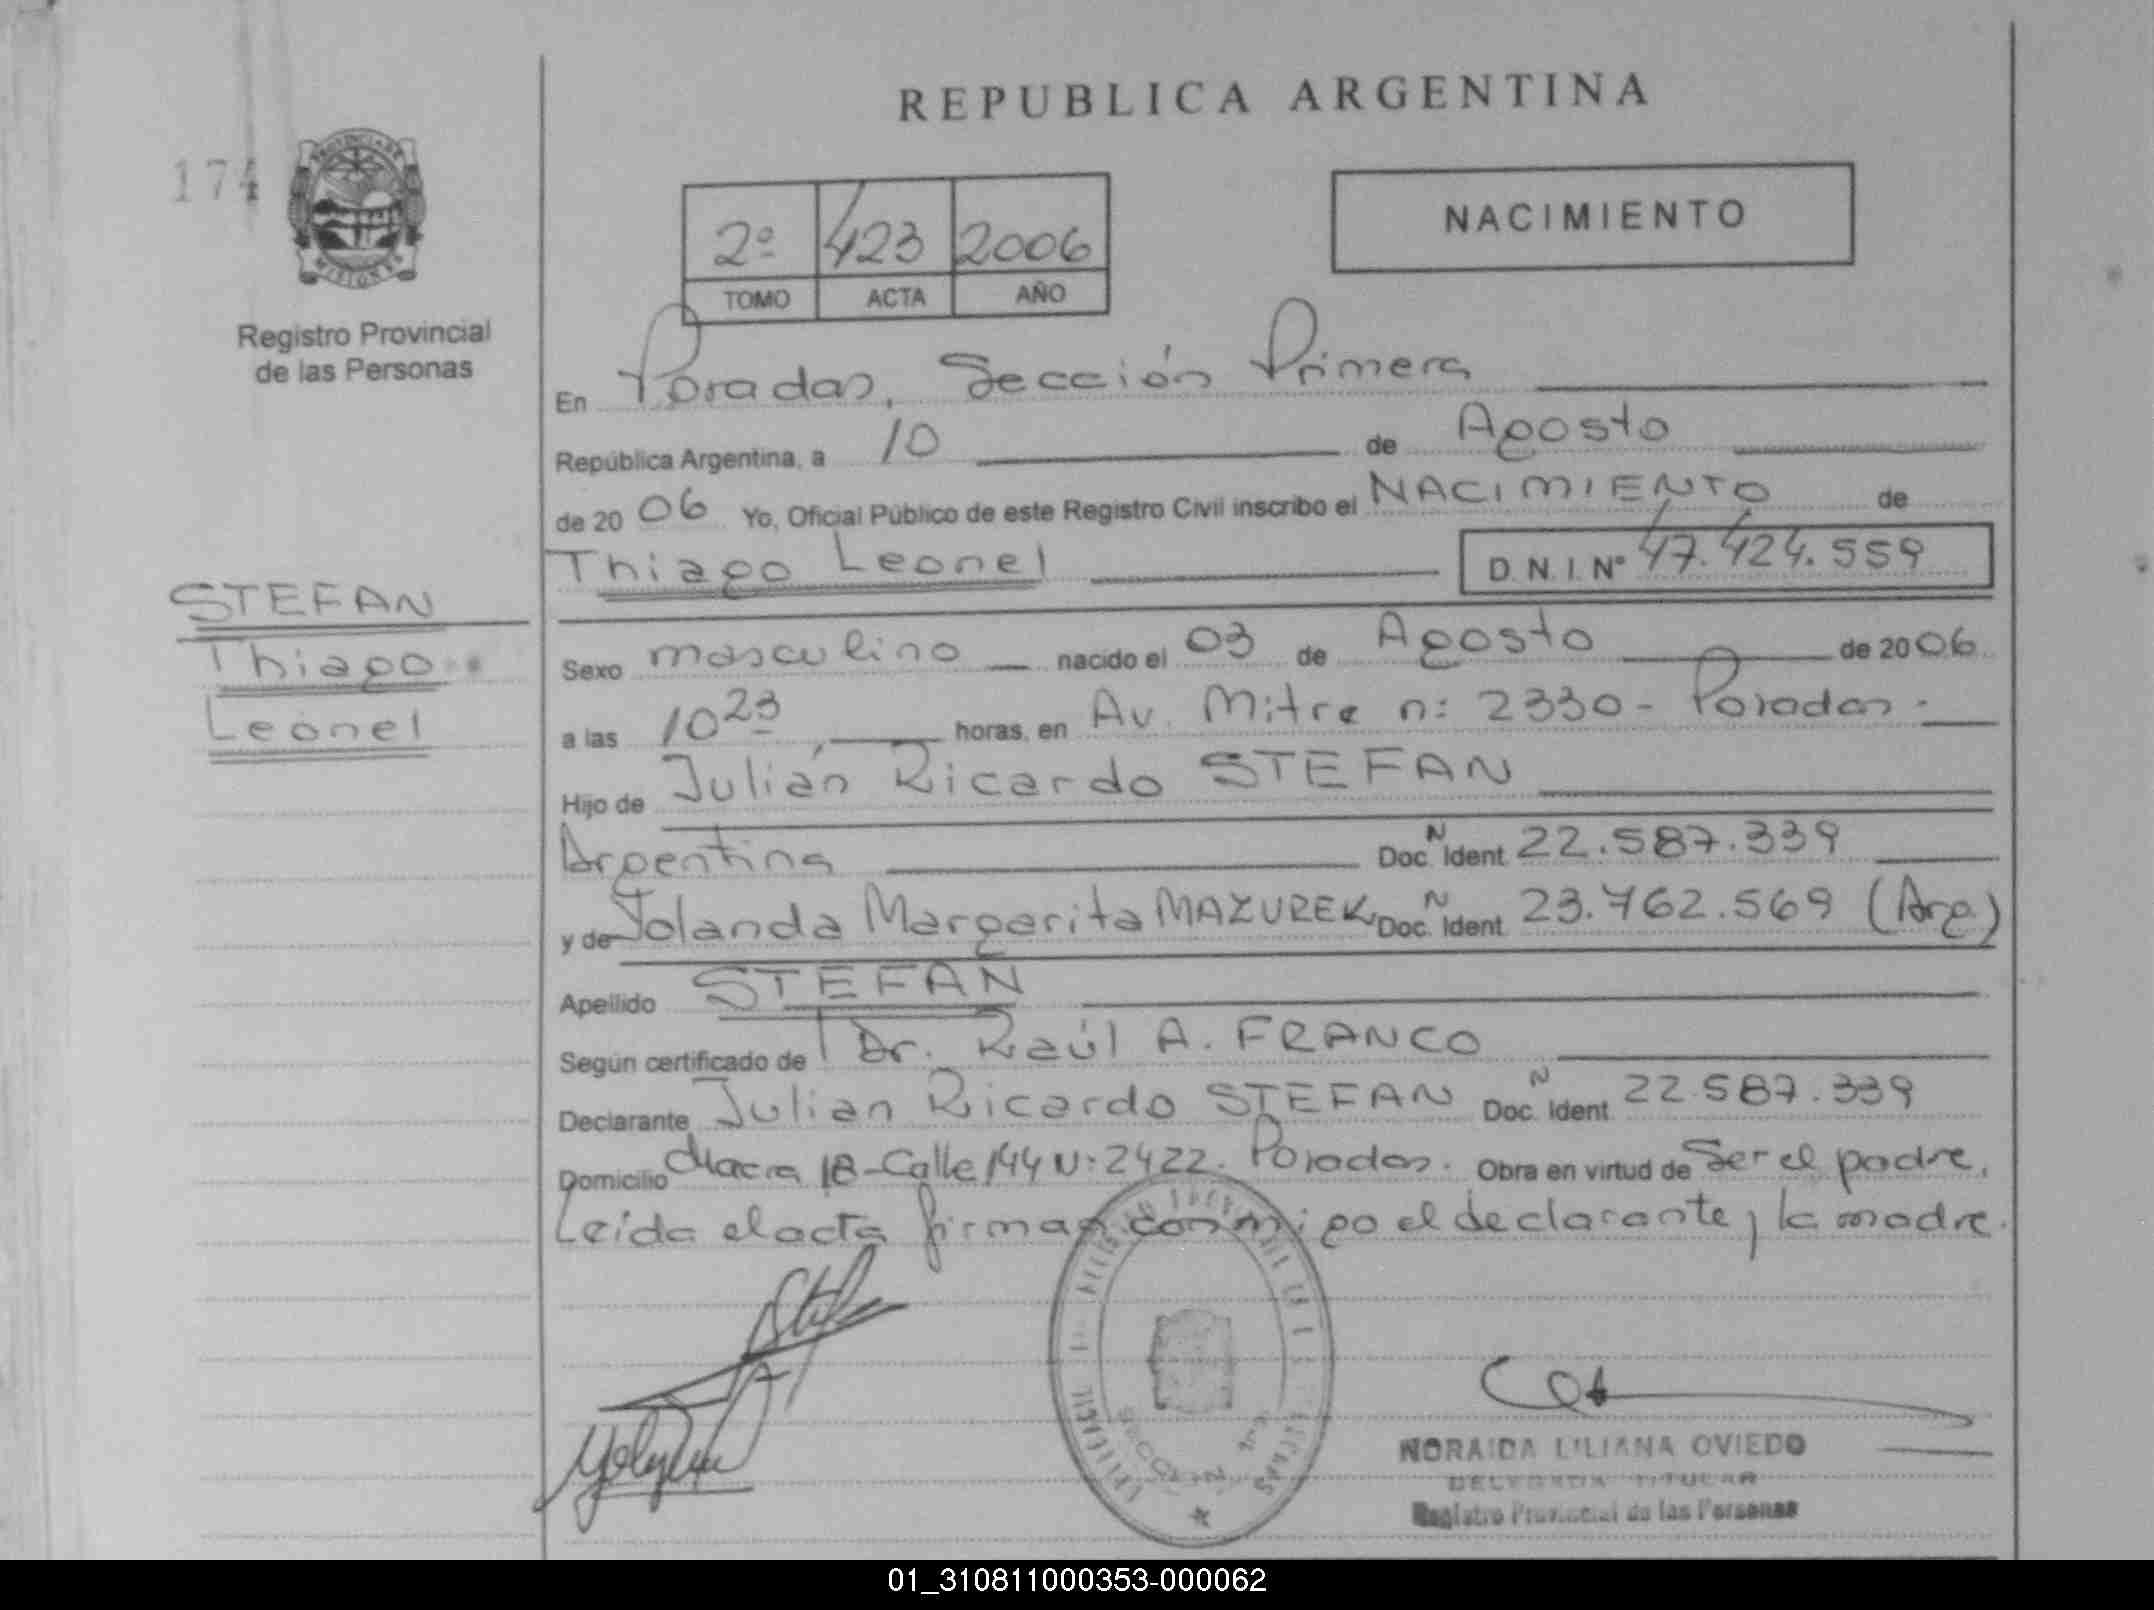 REPUBLICA ARGENTINA
174
PROVINCIA DE
MISIONES
Registro Provincial
de las Personas
2º 423 2006
TOMO ACTA AÑO
NACIMIENTO
En Posadas, Sección Primera
República Argentina, a 10 de Agosto
de 2006 Yo, Oficial Público de este Registro Civil inscribo el NACIMIENTO de
Thiago Leonel D.N.I.Nº 47.424.559
STEFAN
Thiago
Leonel
Sexo masculino nacido el 03 de Agosto de 2006
a las 10 23 horas, en Av. Mitre n: 2330 - Posadas.
Hijo de Julián Ricardo STEFAN
Argentina Doc. N Ident 22.587.339
y de Yolanda Margarita MAZUREK Doc. N Ident 23.762.569 (Arg)
Apellido STEFAN
Según certificado de Dr. Raúl A. FRANCO
Declarante Julian Ricardo STEFAN Doc. N Ident 22.587.339
Domicilio Chacra 18 - Calle 144 N: 2422. Posadas. Obra en virtud de Ser el padre.
Leida el acta firman conmigo el declarante y la madre.
NORAIDA LILIANA OVIEDO
DELEGADA TITULAR
Registro Provincial de las Personas
01_310811000353-000062